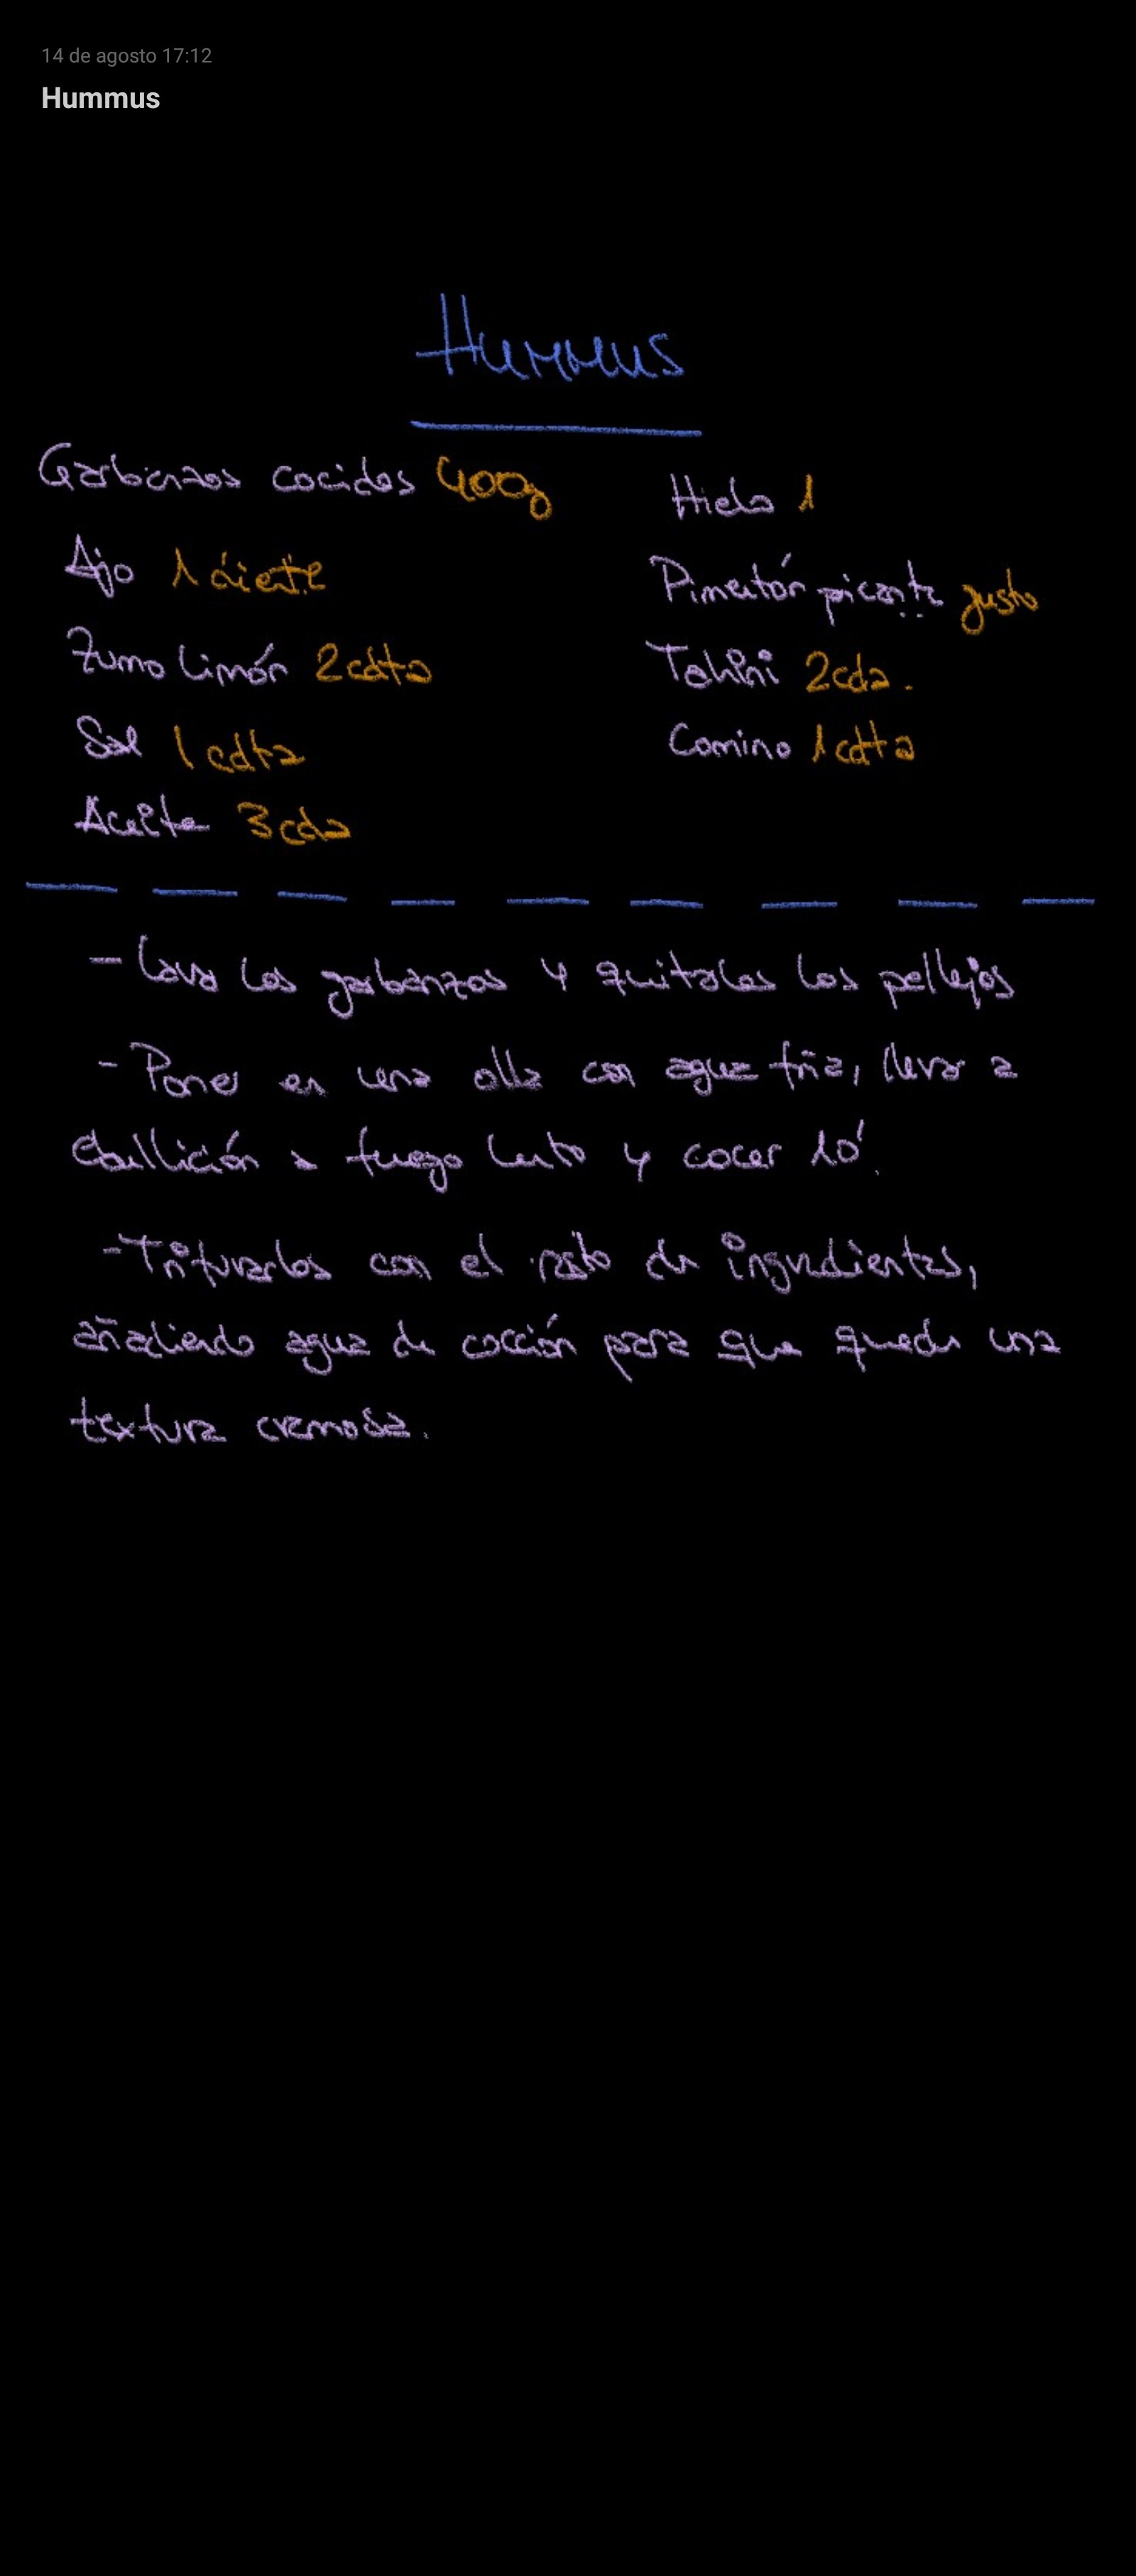 14 de agosto 17:12
Hummus
Hummus
Garbanzos cocidos 400g
Ajo 1 diente
Zumo Limón 2 cdta
Sal 1 cdta
Aceite 3 cda
Hielo 1
Pimentón picante gusto
Tahini 2 cda.
Comino 1 cdta
- Lava los garbanzos y quitales los pellejos
- Poner en una olla con agua fría, llevar a
ebullición a fuego lento y cocer 10'.
- Triturarlos con el resto de ingredientes,
añadiendo agua de cocción para que quede una
textura cremosa.